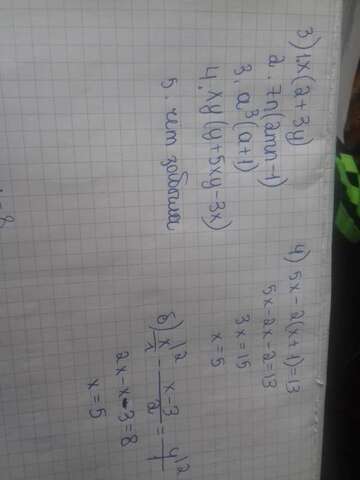 3) 1x(2+3y)
2. 7n(2mn-1)
3. a³(a+1)
4. xy(y+5xy-3x)
5. нет
4) 5x-2(x+1)=13
5x-2x-2=13
3x=15
x=5
6) x/1 |2 - x-3/2 = 4/1 |2
2x-x-3=8
x=5